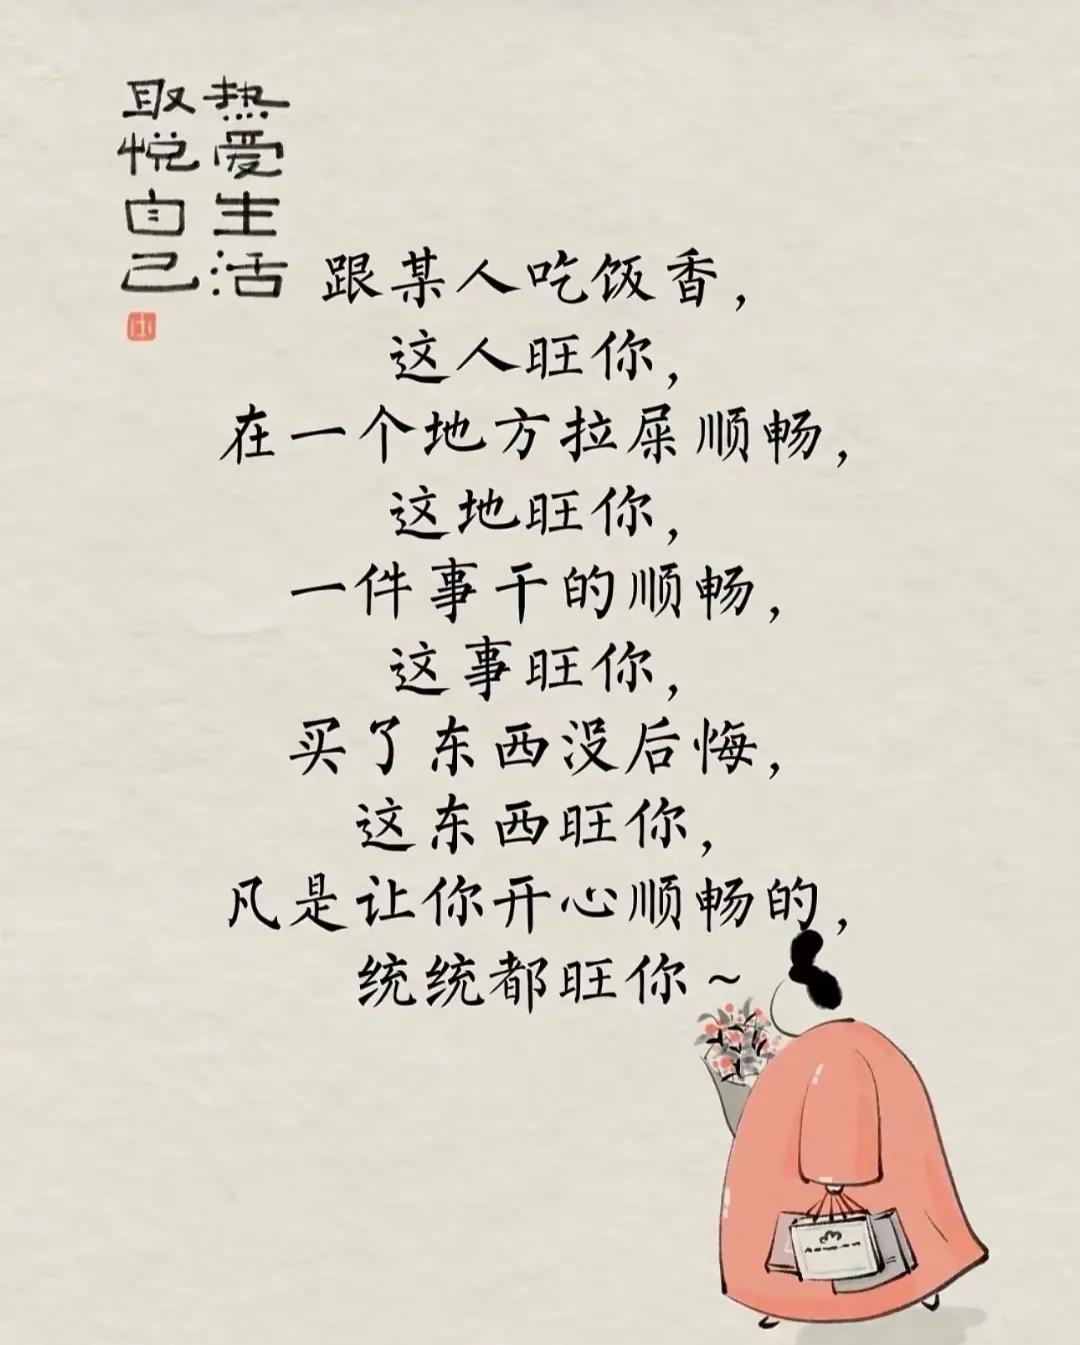 热爱生活
取悦自己
跟某人吃饭香，
这人旺你，
在一个地方拉屎顺畅，
这地旺你，
一件事干的顺畅，
这事旺你，
买了东西没后悔，
这东西旺你，
凡是让你开心顺畅的，
统统都旺你～